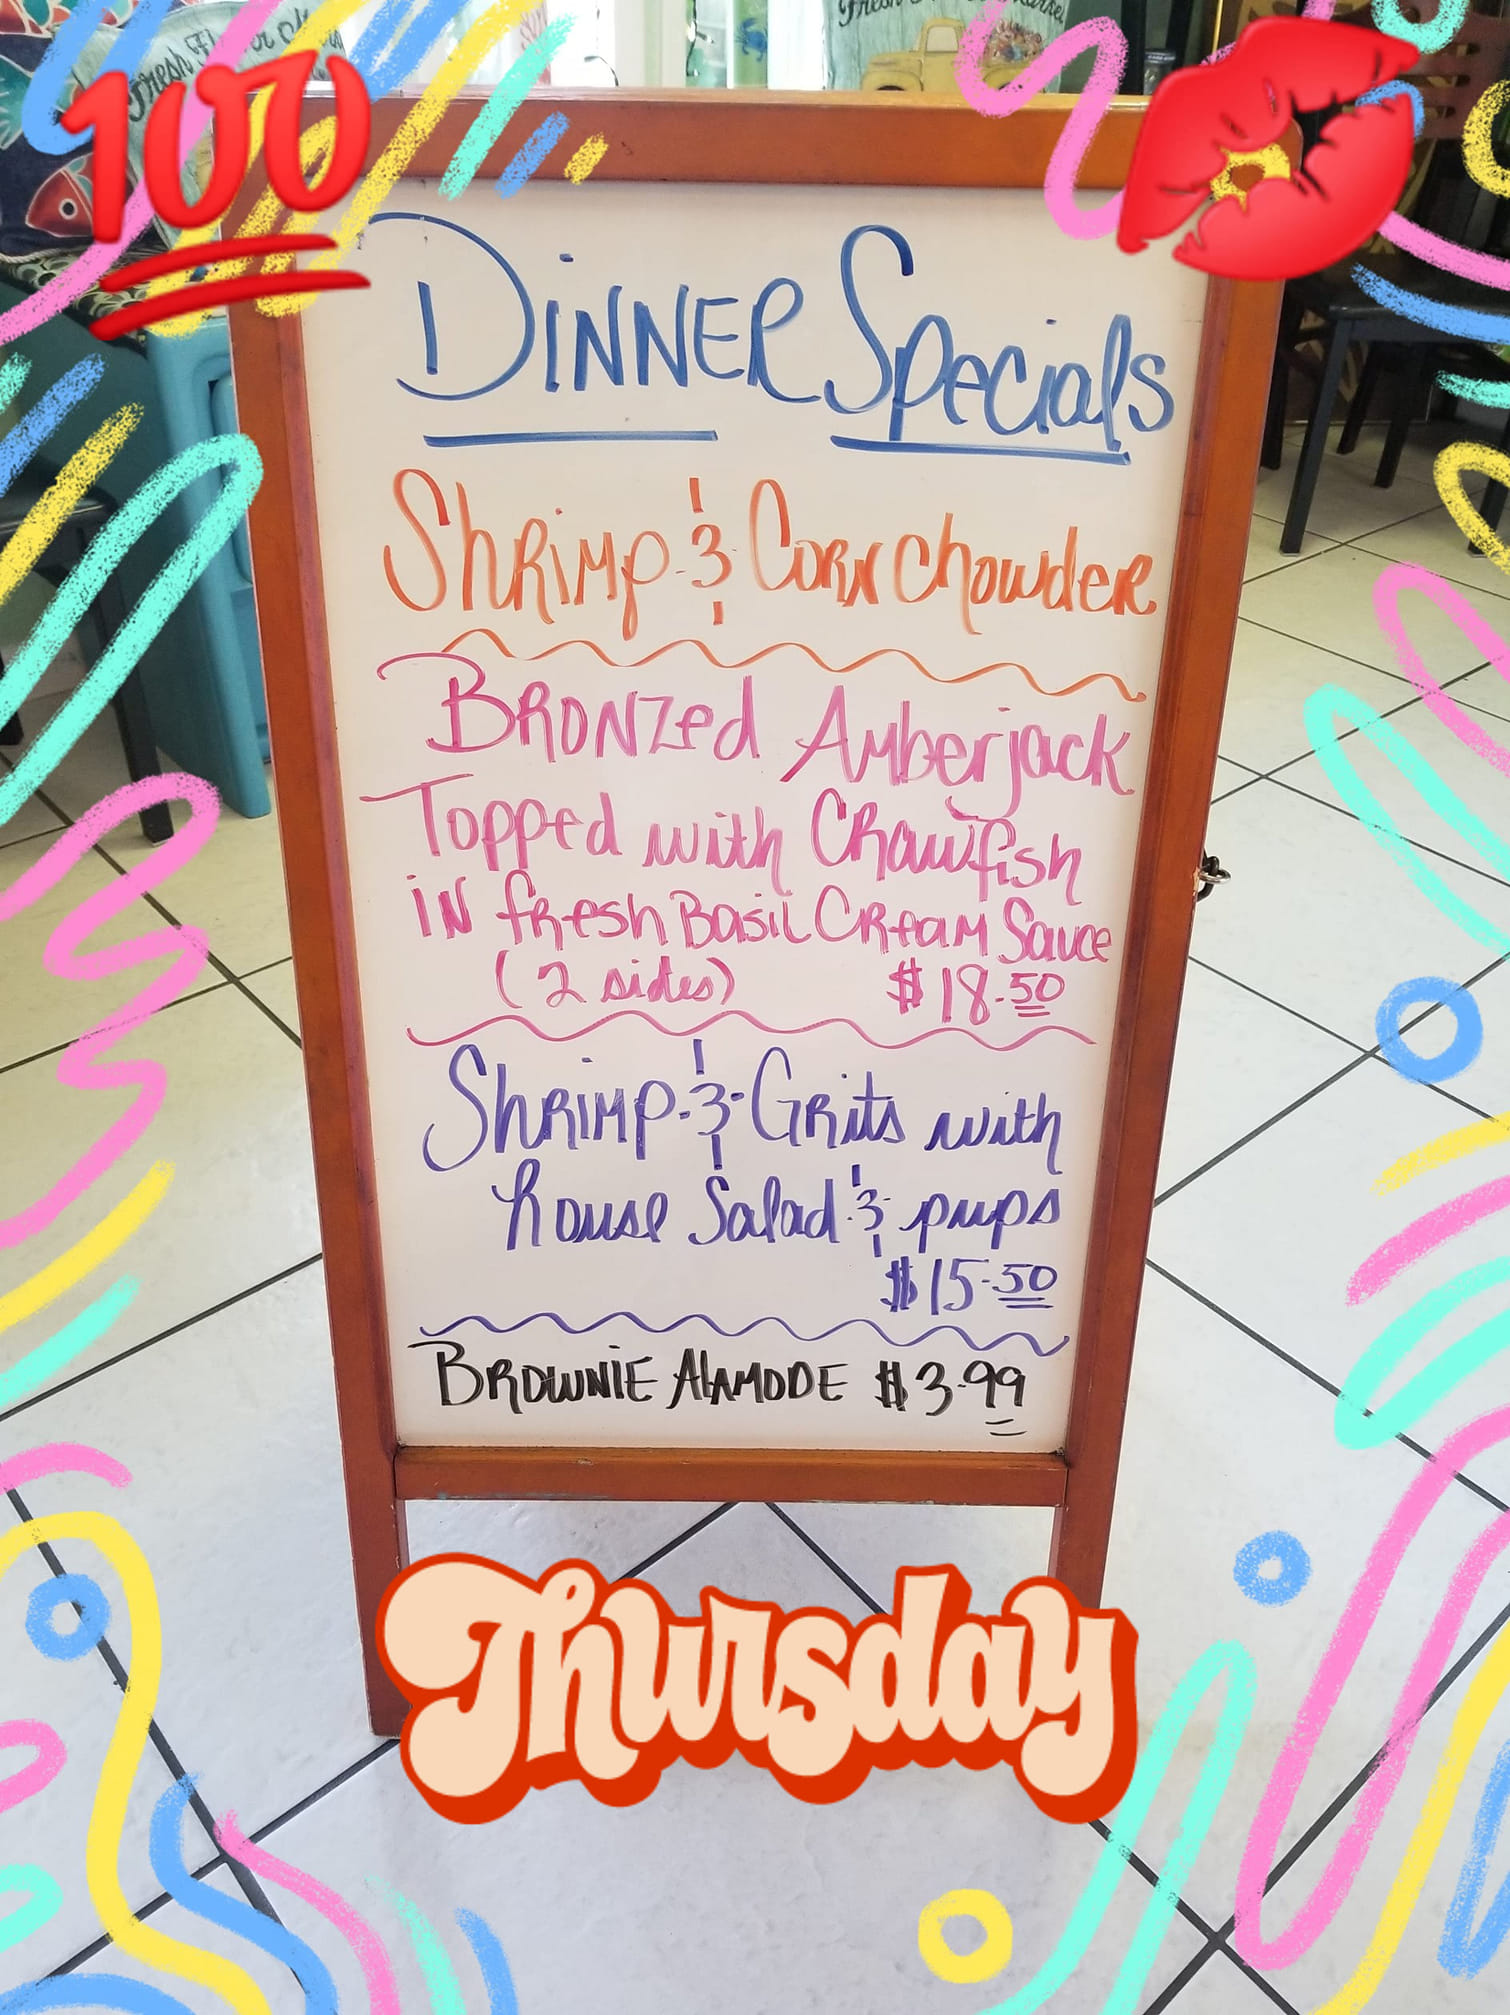 100
DINNER Specials
Shrimp & Corn Chowder
Bronzed Amberjack
Topped with Crawfish
in fresh Basil Cream Sauce
(2 sides) $18.50
Shrimp & Grits with
house Salad & pups
$15.50
BROWNIE ALAMODE $3.99
Thursday